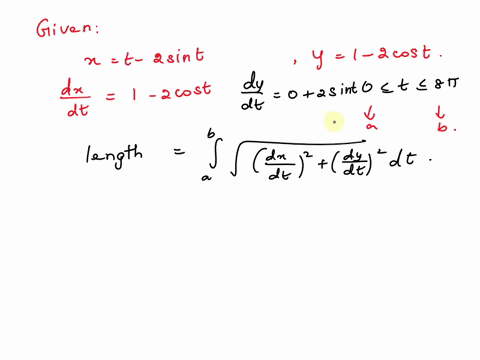 Given:
x = t - 2sint , y = 1 - 2cost.
dx/dt = 1 - 2cost dy/dt = 0 + 2sint 0 ≤ t ≤ 8π
↓ ↓
a b.
length = ∫_a^b √((dx/dt)² + (dy/dt)²) dt.